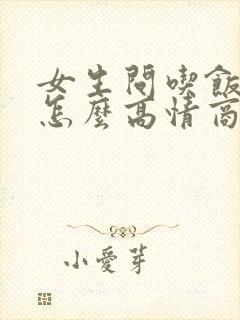 女生問喫飯
怎麼高情商
小愛芽